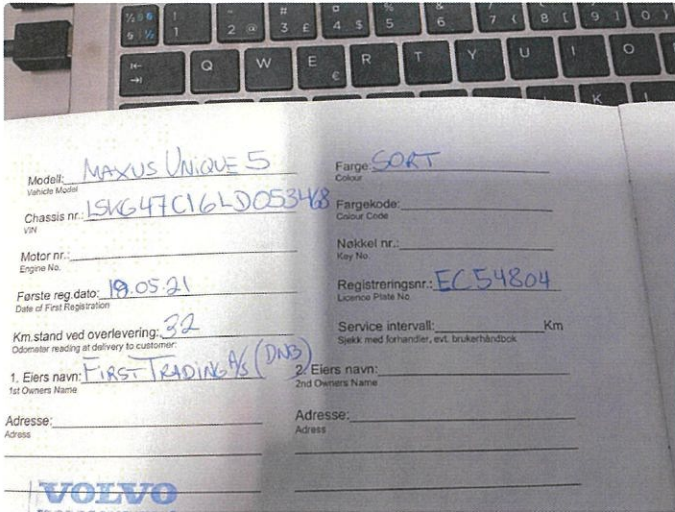 ½ §
§ ½
!
1
"
2 @
#
3 £
¤
4 $
%
5
&
6
/
7 {
(
8 [
)
9 ]
=
0 }
Q W E € R T Y U I O
K L
Modell: MAXUS UNIQUE 5
Vehicle Model
Chassis nr.: LSKG47C16LD053468
VIN
Motor nr.:
Engine No.
Første reg.dato: 19.05.21
Date of First Registration
Km.stand ved overlevering: 32
Odometer reading at delivery to customer:
1. Eiers navn: FIRST TRADING A/S (DNB)
1st Owners Name
Adresse:
Adress
VOLVO
Farge: SORT
Colour
Fargekode:
Colour Code
Nøkkel nr.:
Key No.
Registreringsnr.: EC54804
Licence Plate No.
Service intervall: Km
Sjekk med forhandler, evt. brukerhåndbok
2. Eiers navn:
2nd Owners Name
Adresse:
Adress